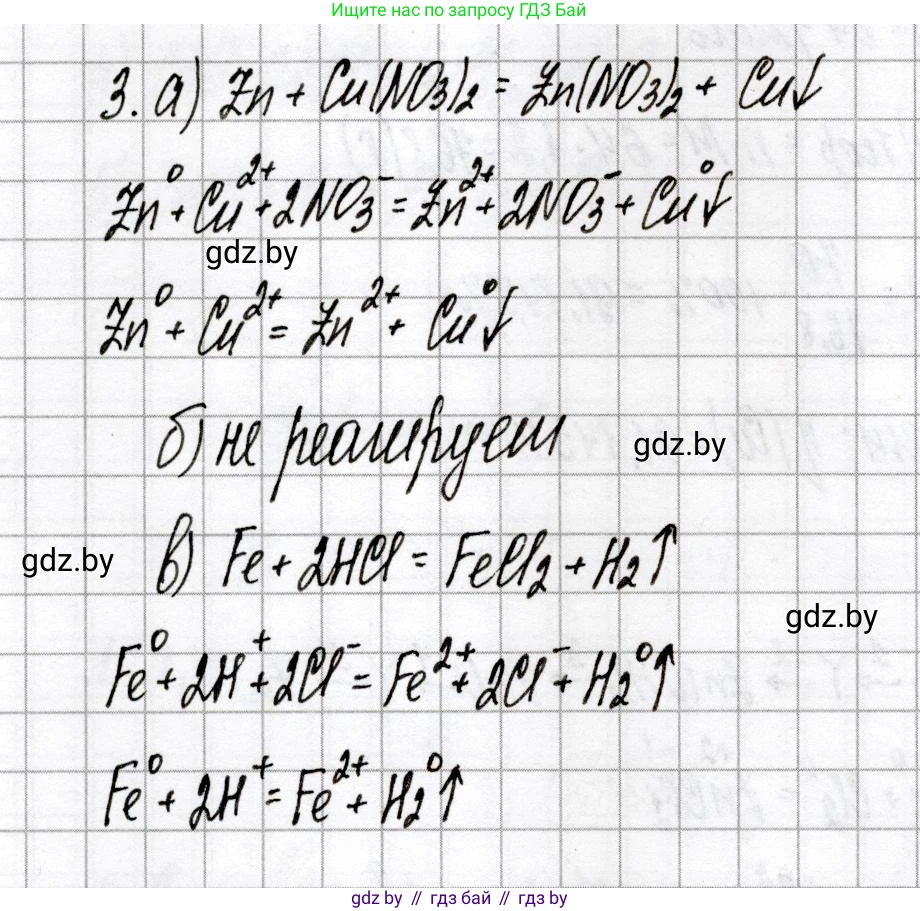 Ищите нас по запросу ГДЗ Бай
3. а) Zn + Cu(NO₃)₂ = Zn(NO₃)₂ + Cu↓
Zn⁰ + Cu²⁺ + 2NO₃⁻ = Zn²⁺ + 2NO₃⁻ + Cu⁰↓
gdz.by
Zn⁰ + Cu²⁺ = Zn²⁺ + Cu⁰↓
б) не реагирует
gdz.by
в) Fe + 2HCl = FeCl₂ + H₂↑
gdz.by
gdz.by
Fe⁰ + 2H⁺ + 2Cl⁻ = Fe²⁺ + 2Cl⁻ + H₂⁰↑
Fe⁰ + 2H⁺ = Fe²⁺ + H₂⁰↑
gdz by // гдз бай // gdz by